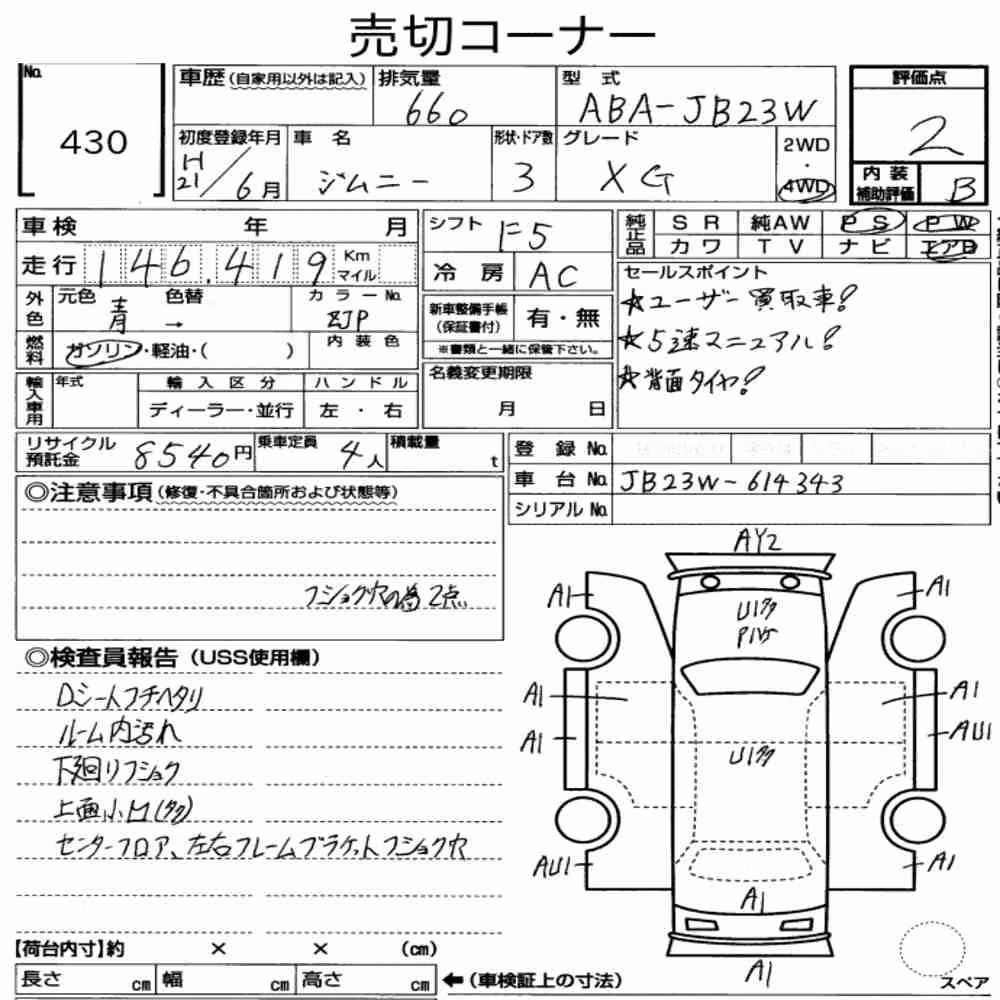 売切コーナー
No. 430
車歴(自家用以外は記入) 排気量 660 型式 ABA-JB23W 評価点 2
初度登録年月 H21/6月 車名 ジムニー 形状・ドア数 3 グレード XG 2WD・4WD 内装補助評価 B
車検 年 月 シフト F5 純正品 SR 純AW PS PW
走行 146,419 Km マイル 冷房 AC カワ TV ナビ エアB
外色 元色 青 色替 → カラーNo. ZJP 新車整備手帳(保証書付) 有・無 セールスポイント
☆ユーザー買取車!
燃料 ガソリン・軽油・( ) 内装色 ※書類と一緒に保管下さい。 ☆5速マニュアル!
輸入車用 年式 輸入区分 ハンドル 名義変更期限 ☆背面タイヤ!
ディーラー・並行 左・右 月 日
リサイクル預託金 8540円 乗車定員 4人 積載量 t 登録No.
車台No. JB23W-614343
シリアルNo.
◎注意事項(修復・不具合箇所および状態等)
フショク穴の為2点
◎検査員報告(USS使用欄)
Dシートフチヘタリ
ルーム内汚れ
下廻りフショク
上面小凹(多)
センターフロア、左右フレームブラケットフショク穴
AY2
A1 A1
U1多
P1ヶ
A1 A1
A1 AU1
U1多
AU1 A1
A1
A1
【荷台内寸】約 × × (cm)
長さ cm 幅 cm 高さ cm ←(車検証上の寸法) スペア